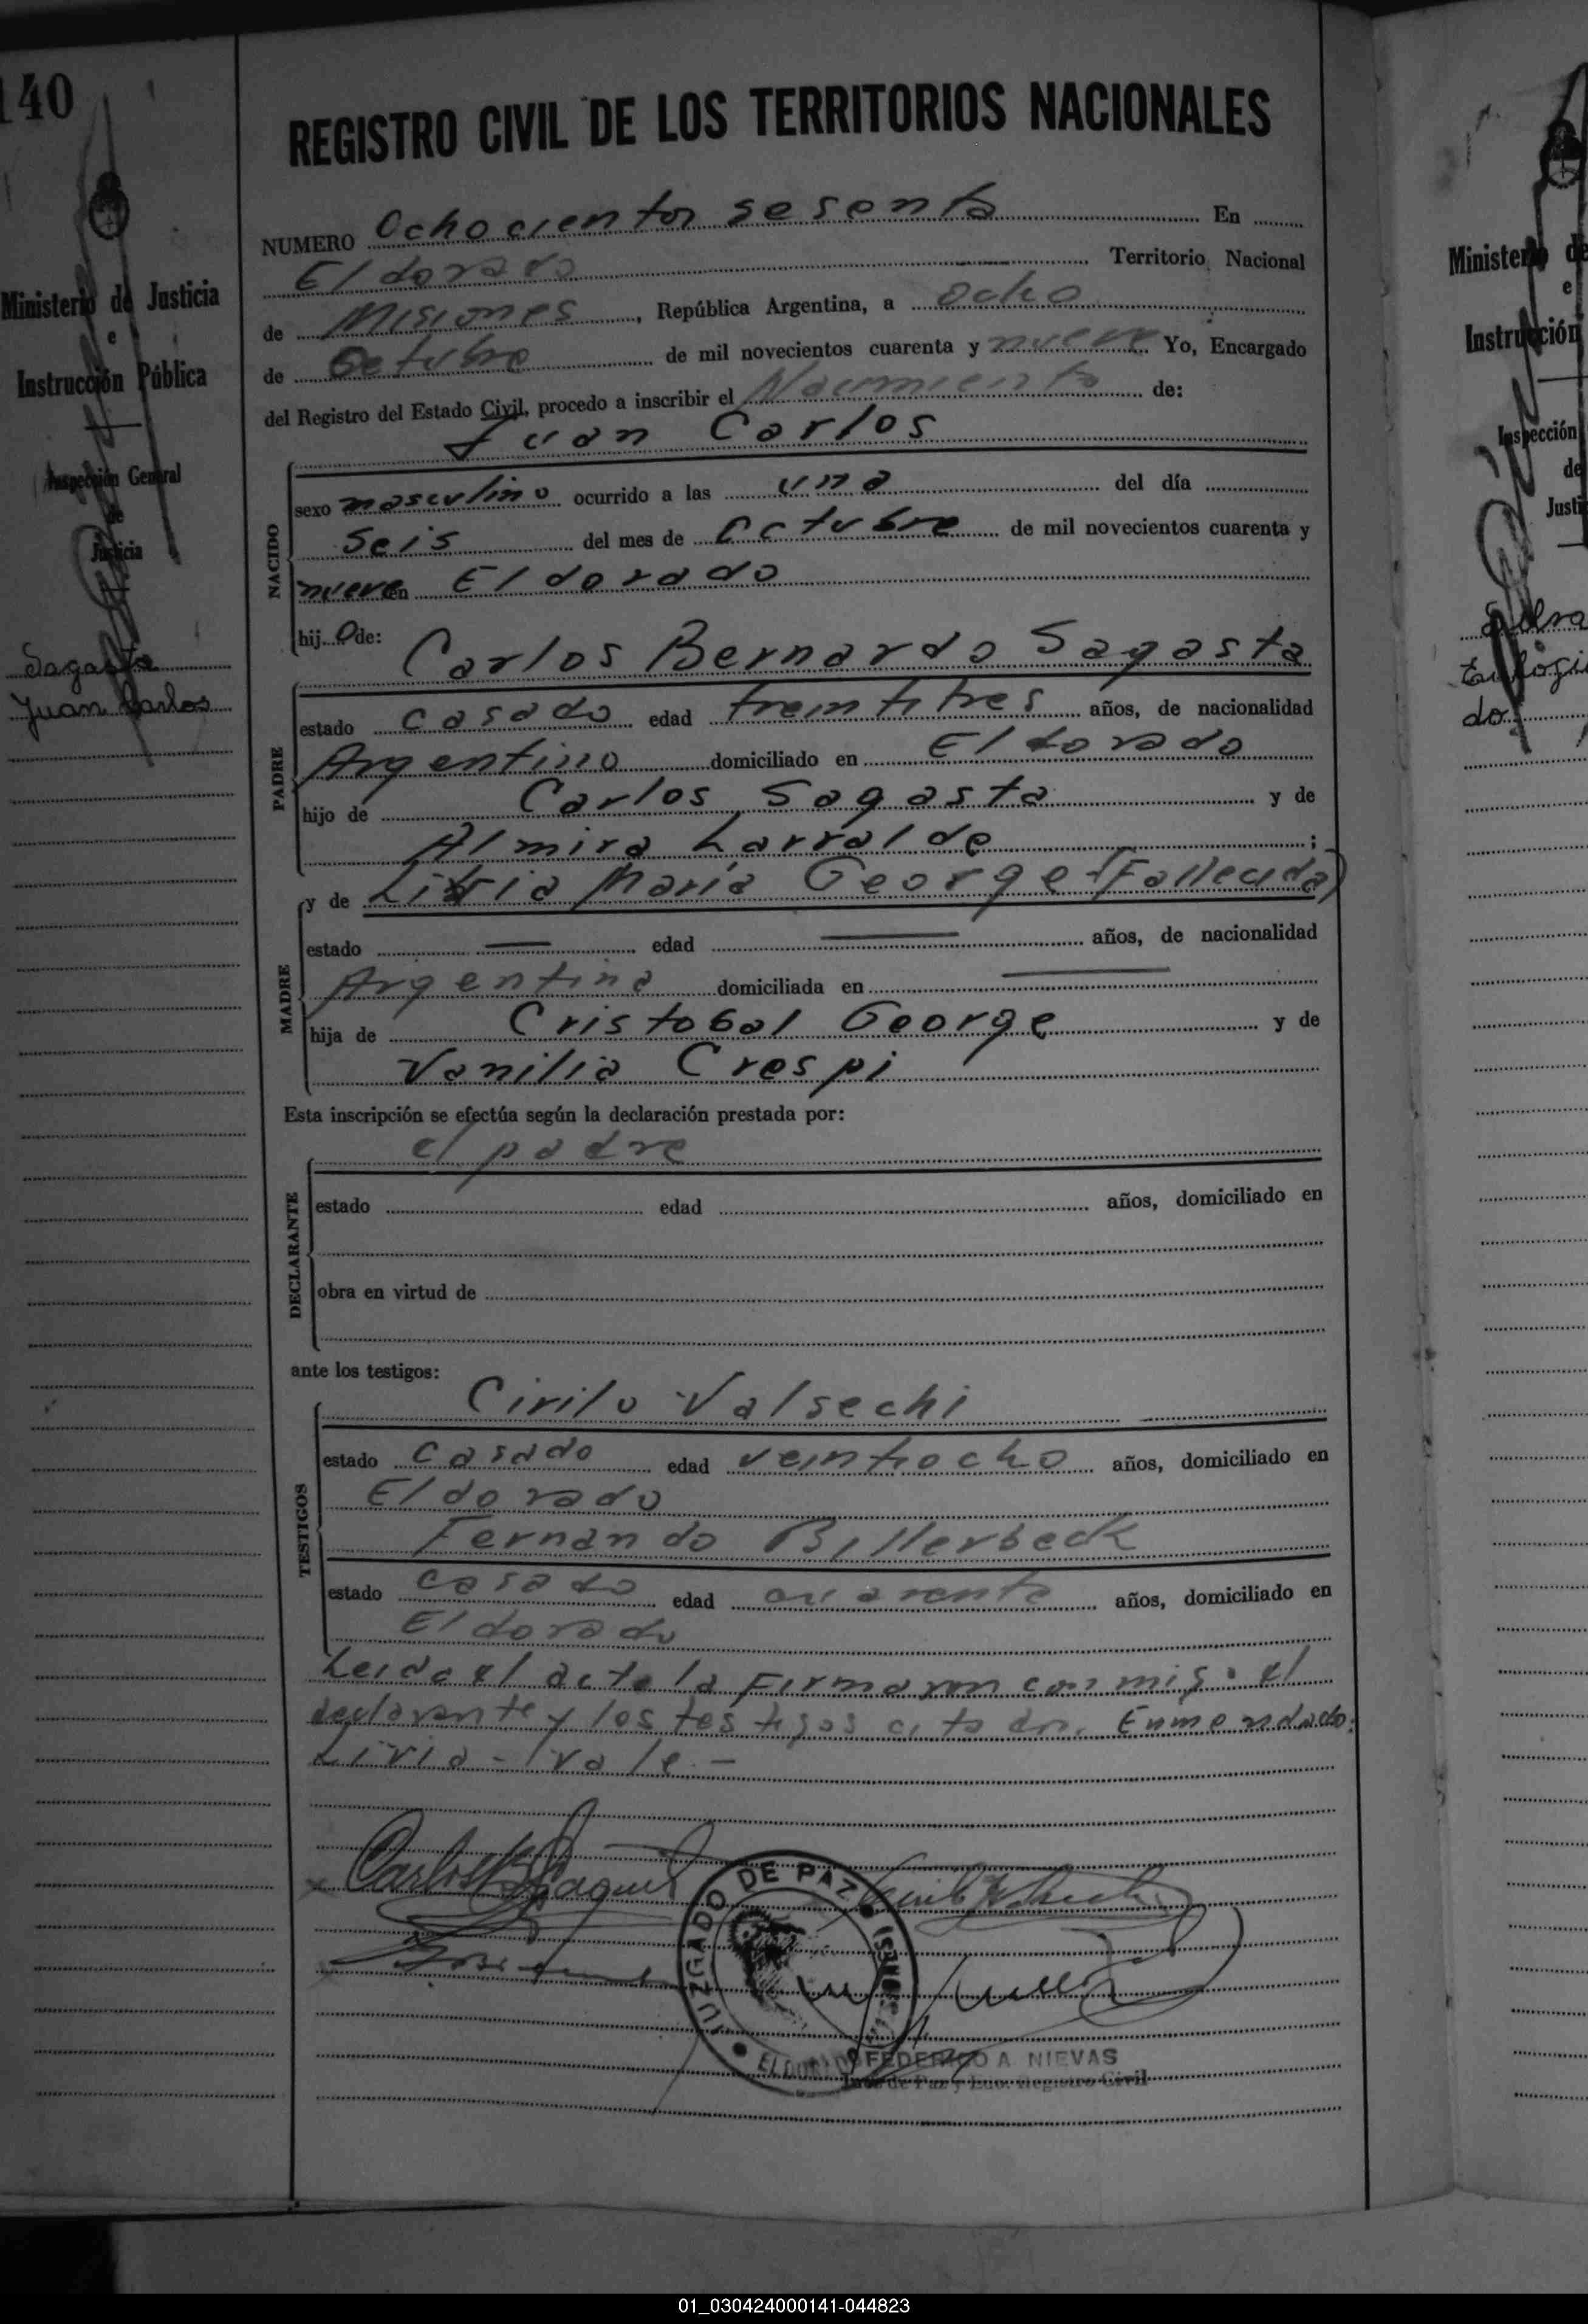 140
Ministerio de Justicia
e
Instrucción Pública
Inspección General
de
Justicia
Sagasta
Juan Carlos
REGISTRO CIVIL DE LOS TERRITORIOS NACIONALES
NUMERO Ochocientos sesenta En
Eldorado Territorio Nacional
de Misiones, República Argentina, a ocho
de Octubre de mil novecientos cuarenta y nueve Yo, Encargado
del Registro del Estado Civil, procedo a inscribir el Nacimiento de:
Juan Carlos
NACIDO
sexo masculino ocurrido a las una del día
Seis del mes de Octubre de mil novecientos cuarenta y
nueve en Eldorado
hijo de: Carlos Bernardo Sagasta
PADRE
estado casado edad treintitres años, de nacionalidad
Argentino domiciliado en Eldorado
hijo de Carlos Sagasta y de
Almira Larralde;
y de Livia María George (Fallecida)
MADRE
estado — edad — años, de nacionalidad
Argentina domiciliada en —
hija de Cristobal George y de
Vanilia Crespi
Esta inscripción se efectúa según la declaración prestada por:
el padre
DECLARANTE
estado edad años, domiciliado en
obra en virtud de
ante los testigos:
Cirilo Valsechi
TESTIGOS
estado casado edad veintiocho años, domiciliado en
Eldorado
Fernando Billerbeck
estado casado edad cuarenta años, domiciliado en
Eldorado
Leida el acta la firmaron con migo el
declarante y los testigos citados. Enmendado:
Livia - vale. -
JUZGADO DE PAZ
ELDORADO
FEDERICO A NIEVAS
Juez de Paz y Enc. Registro Civil
Ministerio de
e
Instrucción
Inspección
de
Justi
Eulogi
do
01_030424000141-044823